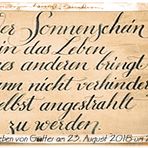 er Sonnenschein
in das Leben
es anderen bringt
ann nicht verhindern
elbst angestrahlt
zu werden
eben von Grafter am 23. August 2018 um